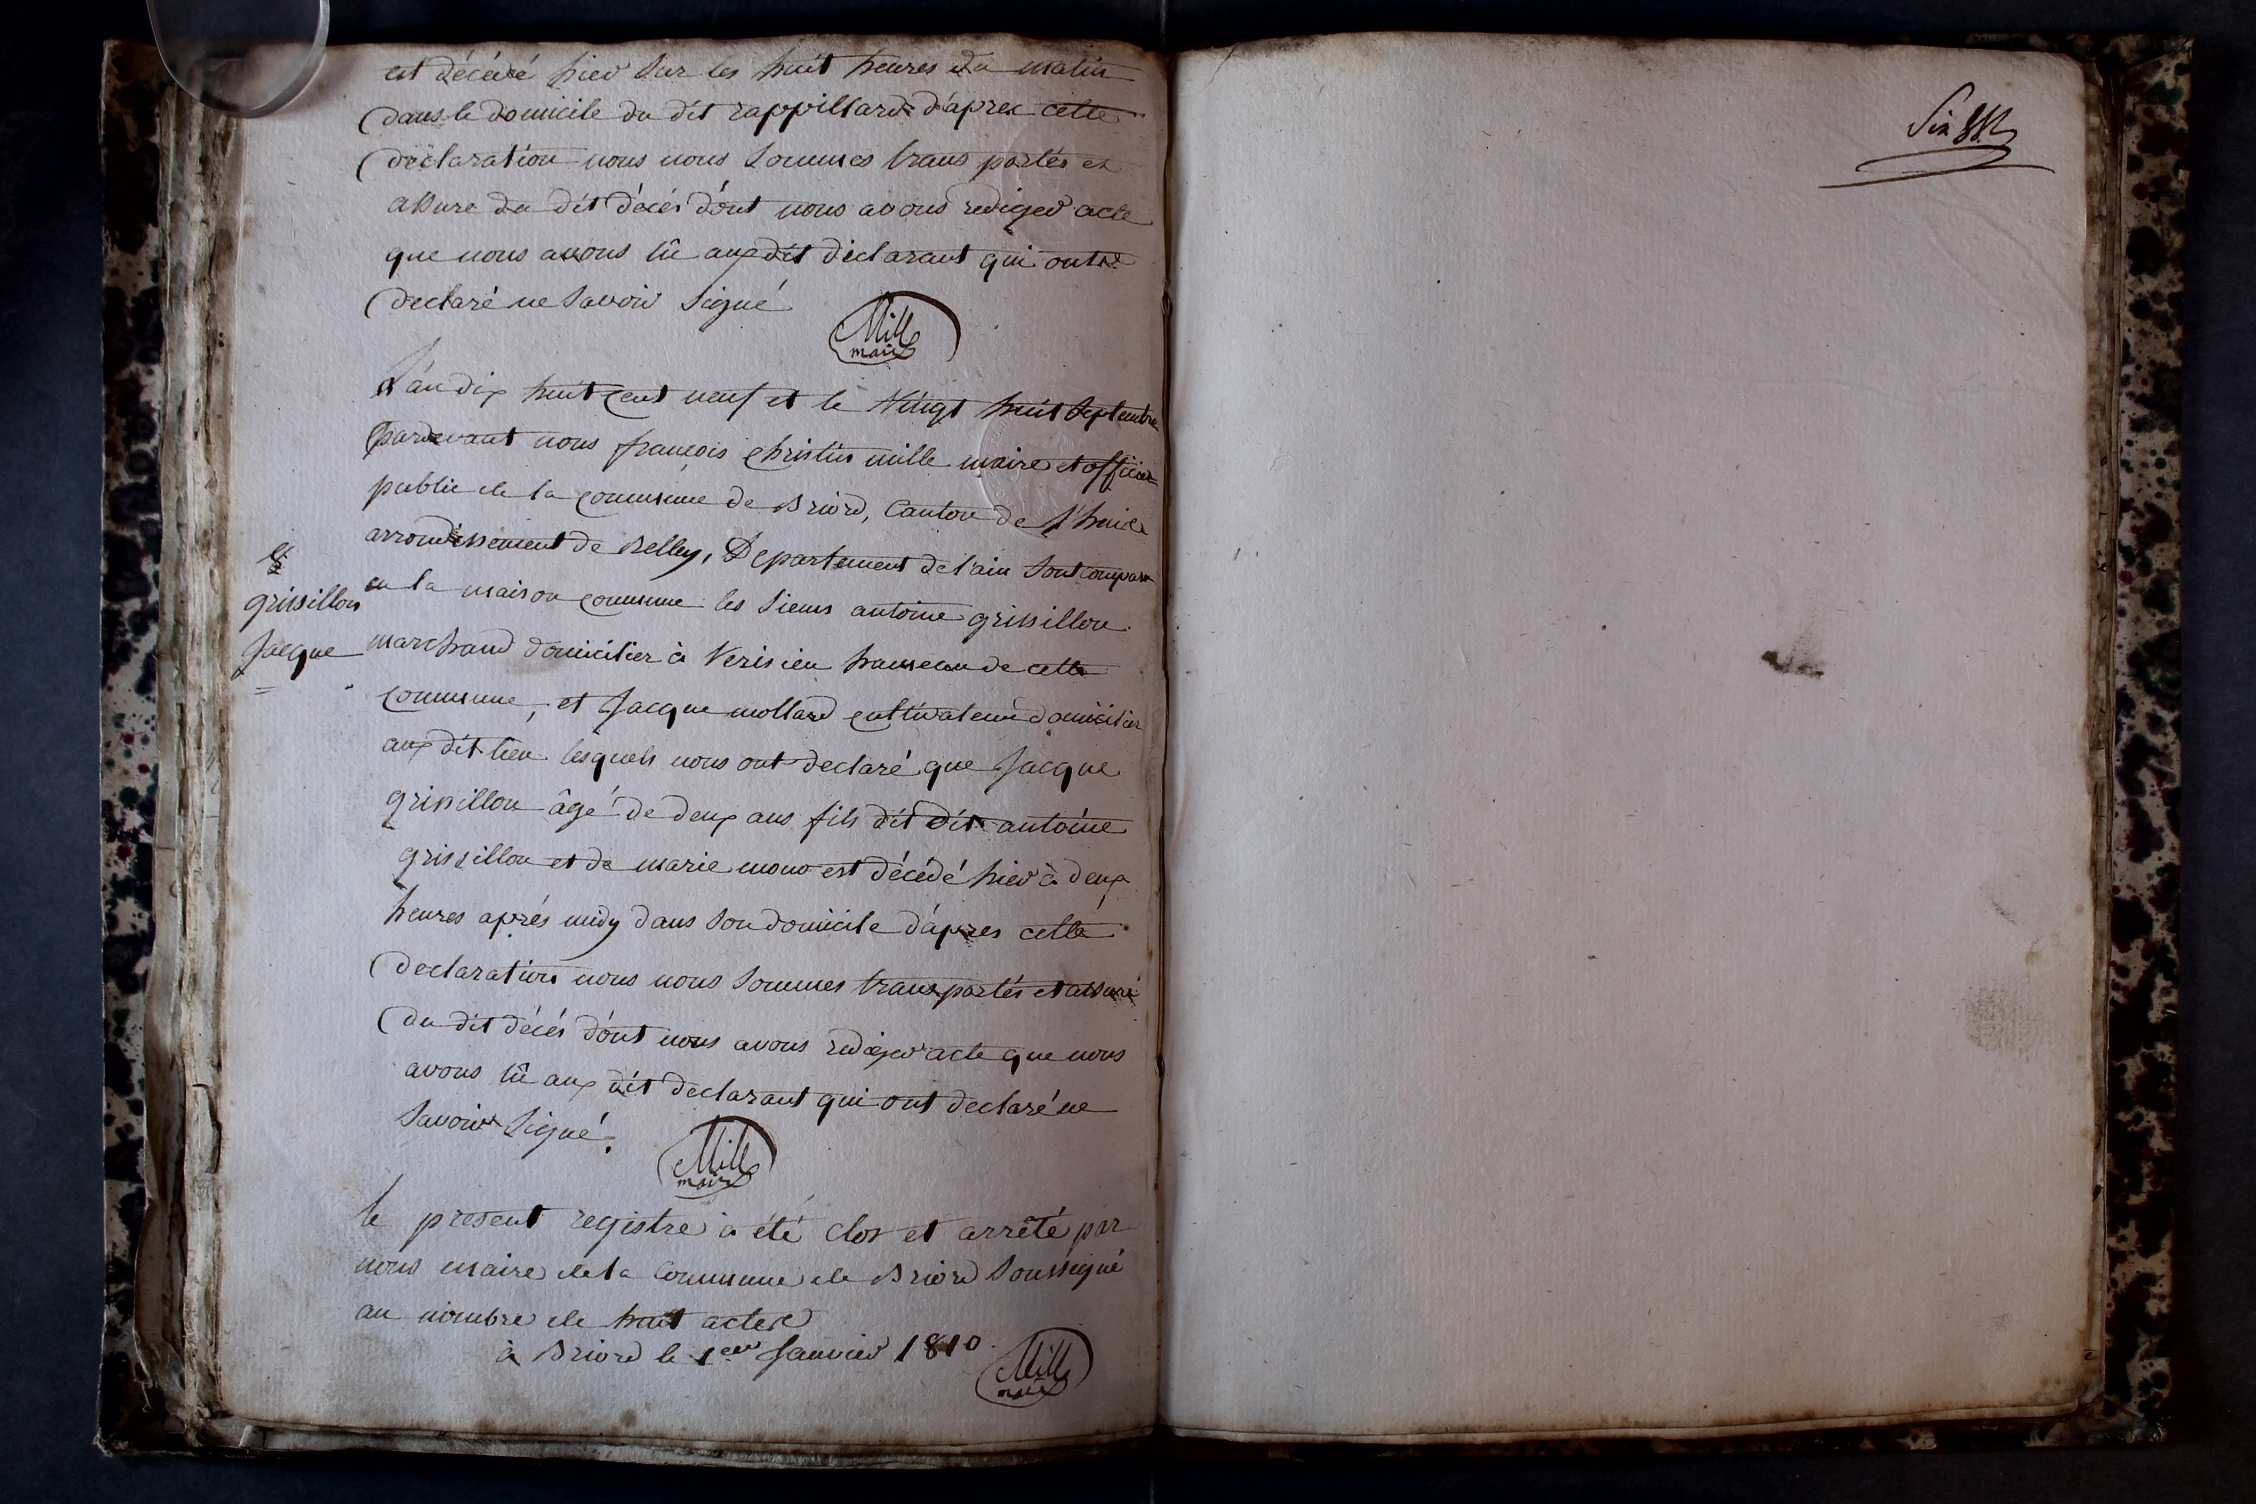 est décédé hier sur les huit heures du matin
dans le domicile du dit rappillard d'apres cette
déclaration nous nous sommes trans portés et
assure du dit décés dont nous avons rediger acte
que nous avons lû aux dit déclarant qui ont
declaré ne savoir signé
Mille
maire
L'an dix huit cent neuf et le Vingt huit Septembre
pardevant nous françois christin mille maire et officier
public de la commune de Briord, Canton de l'huis
arrondissement de Belley, Departement de l'ain sont compar
en la maison commune les sieurs antoine grissillon
8
grissillon
Jacque
marchand domicilier à Verisieu hameau de cette
commune, et Jacque mollard cultivateur domicilier
aux dit lieu lesquels nous ont declaré que Jacque
grissillon âgé de deux ans fils dit dit antoine
grissillon et de marie mono est décédé hier à deux
heures aprés midy dans son domicile d'apres cette
declaration nous nous sommes transportés et assuré
du dit décés dont nous avons rediger acte que nous
avons lû aux dit declarant qui ont declaré ne
savoir signé.
Mille
maire
le present registre à été clos et arrêté par
nous maire de la Commune de Briord soussigné
au nombre de huit actes
à Briord le 1er Janvier 1810
Mille
maire
Six